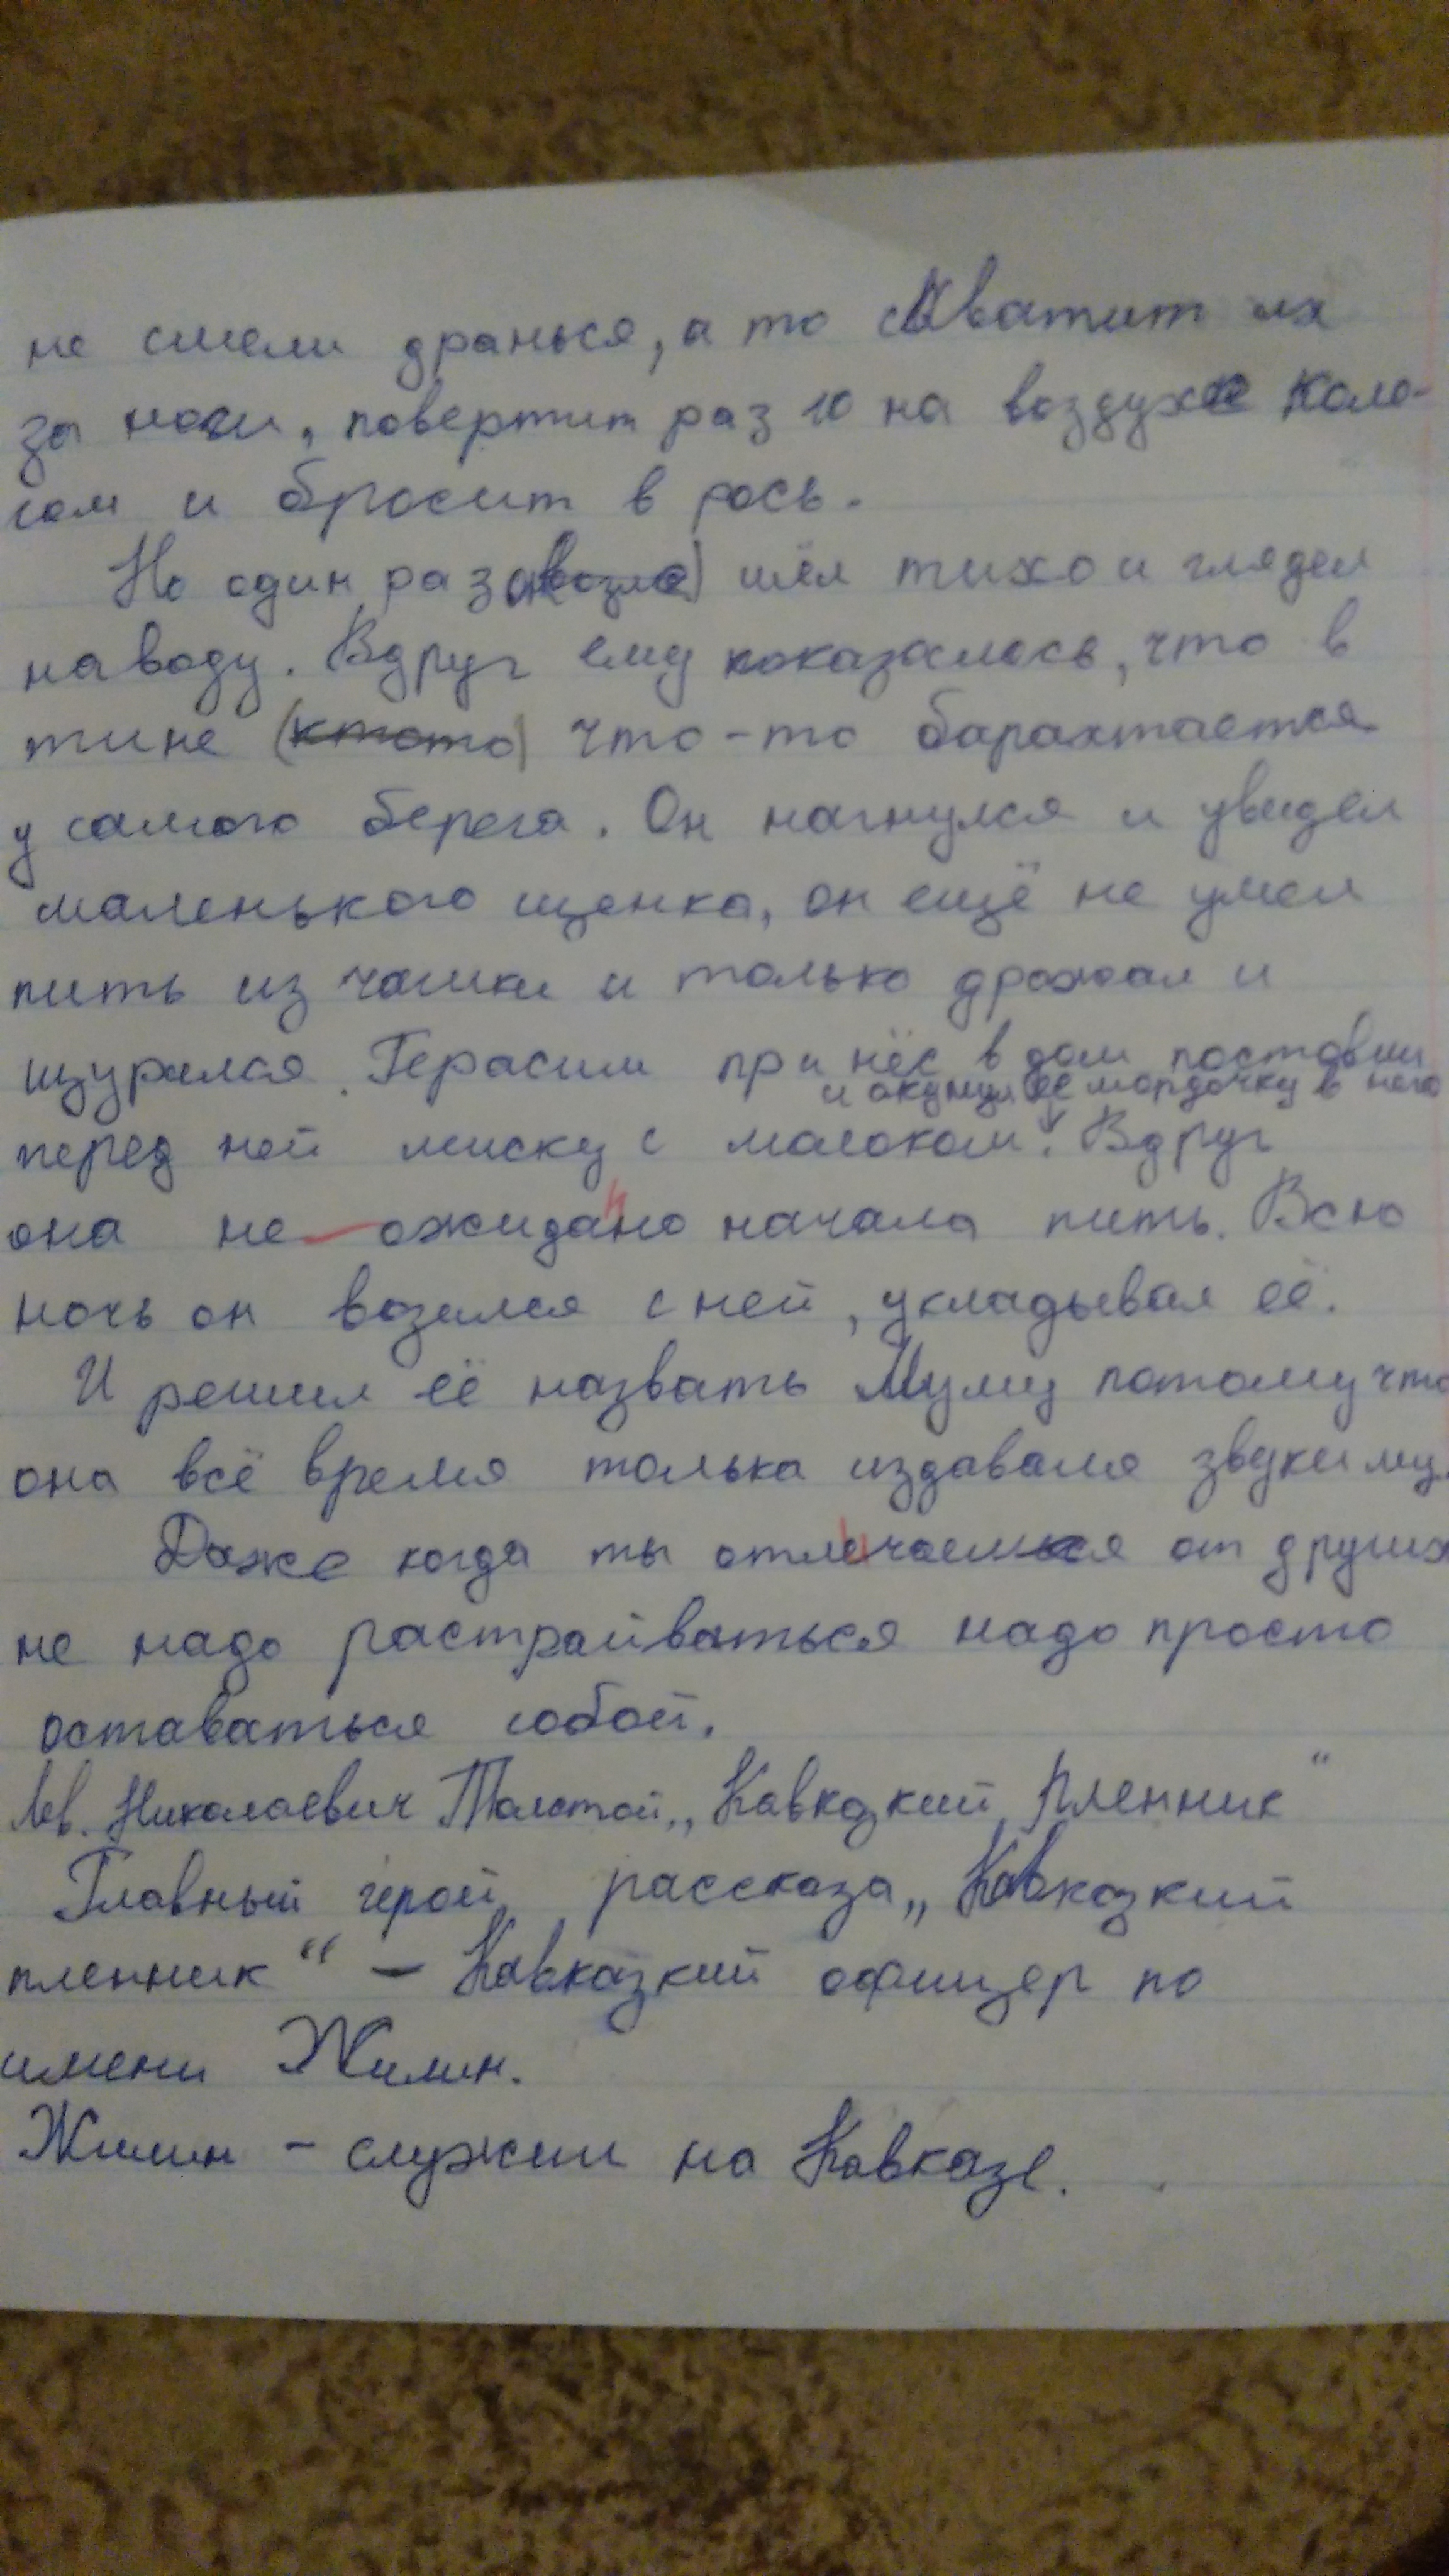 не смели драться, а то схватит их
за ноги, повертит раз 10 на воздухе Коле-
сом и бросит в рось.
Но один раз он шёл тихо и глядел
на воду. Вдруг ему показалось, что в
тине (ктото) что-то барахтается
у самого берега. Он нагнулся и увидел
маленького щенка, он ещё не умел
пить из чашки и только дрожал и
щурился. Герасим принёс в дом поставил
и окунул её мордочку в него
перед ней миску с молоком. Вдруг
она не ожидано начала пить. Всю
ночь он возился с ней, укладывал её.
И решил её назвать Муму потому что
она всё время только издавала звуки му.
Даже когда ты отличаешься от других
не надо растраиваться надо просто
оставаться собой.
Лев. Николаевич Толстой „Кавказкий Пленник“
Главный герой рассказа „Кавказкий
пленник“ – Кавказкий офицер по
имени Жилин.
Жилин – служил на Кавказе.